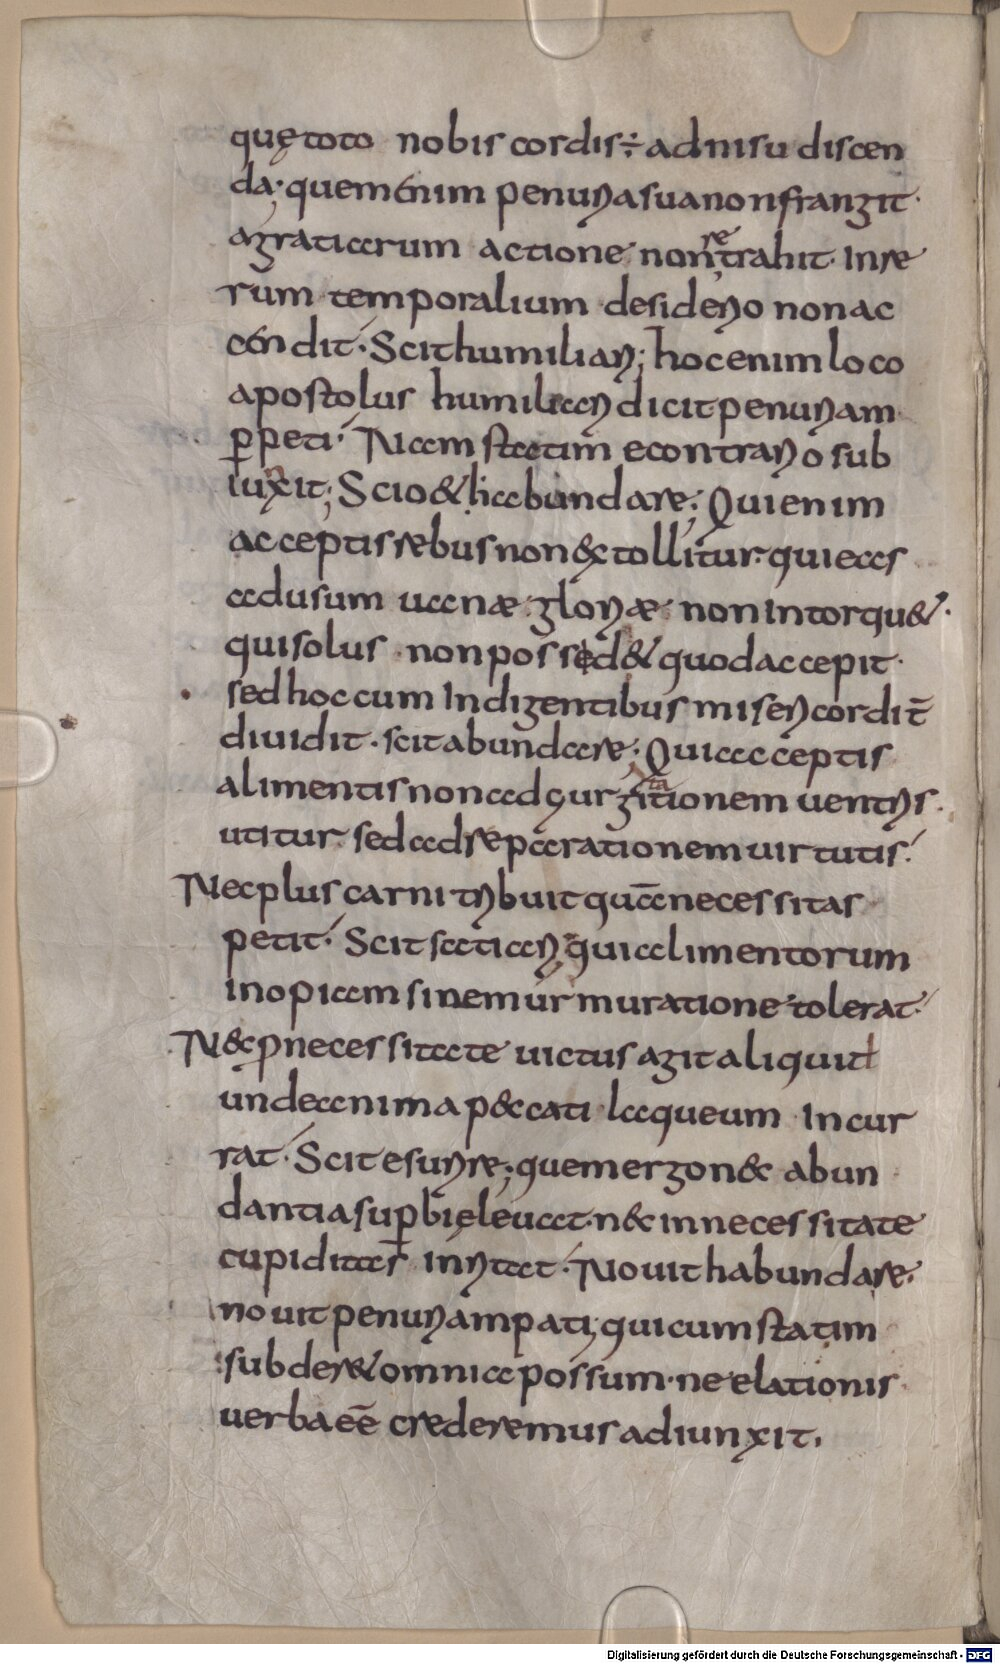 quę toto nobis cordis; adnisu discen
da; quem enim penuria sua non frangit
agratiarum actione non retrahit. In re
rum temporalium desiderio non ac
cendit. Scit humiliari; hoc enim loco
apostolus humiliari dicit penuriam
ꝑpeti. Nam statim econtrario sub
iunxit; Scio & habundare; Qui enim
acceptis rebus non extollitur. qui eas
ad usum uanæ gloriæ non intorqu&.
qui solus non possed& quod accepit.
sed hoc cum Indigentibus misericordit̄
diuidit. scit abundare; Qui acceptis
alimentis non ad gurgitationem uentris.
utitur sed ad reparationem uirtutis.
Nec plus carni tribuit quā necessitas
petit. Scit satiari, qui alimentorum
inopiam sine murmuratione tolerat.
Nec ꝑ necessitate uictus agit aliquit
unde anima peccati laqueum Incur
rat. Scit esurire; quem ergo nec abun
dantia suꝑbię leuat. nec in necessitate
cupiditas inritat. Nouit habundare.
nouit penuriam pati; qui cum statim
subder& omnia possum. ne elationis
uerba eē crederemus adiunxit.
Digitalisierung gefördert durch die Deutsche Forschungsgemeinschaft - DFG